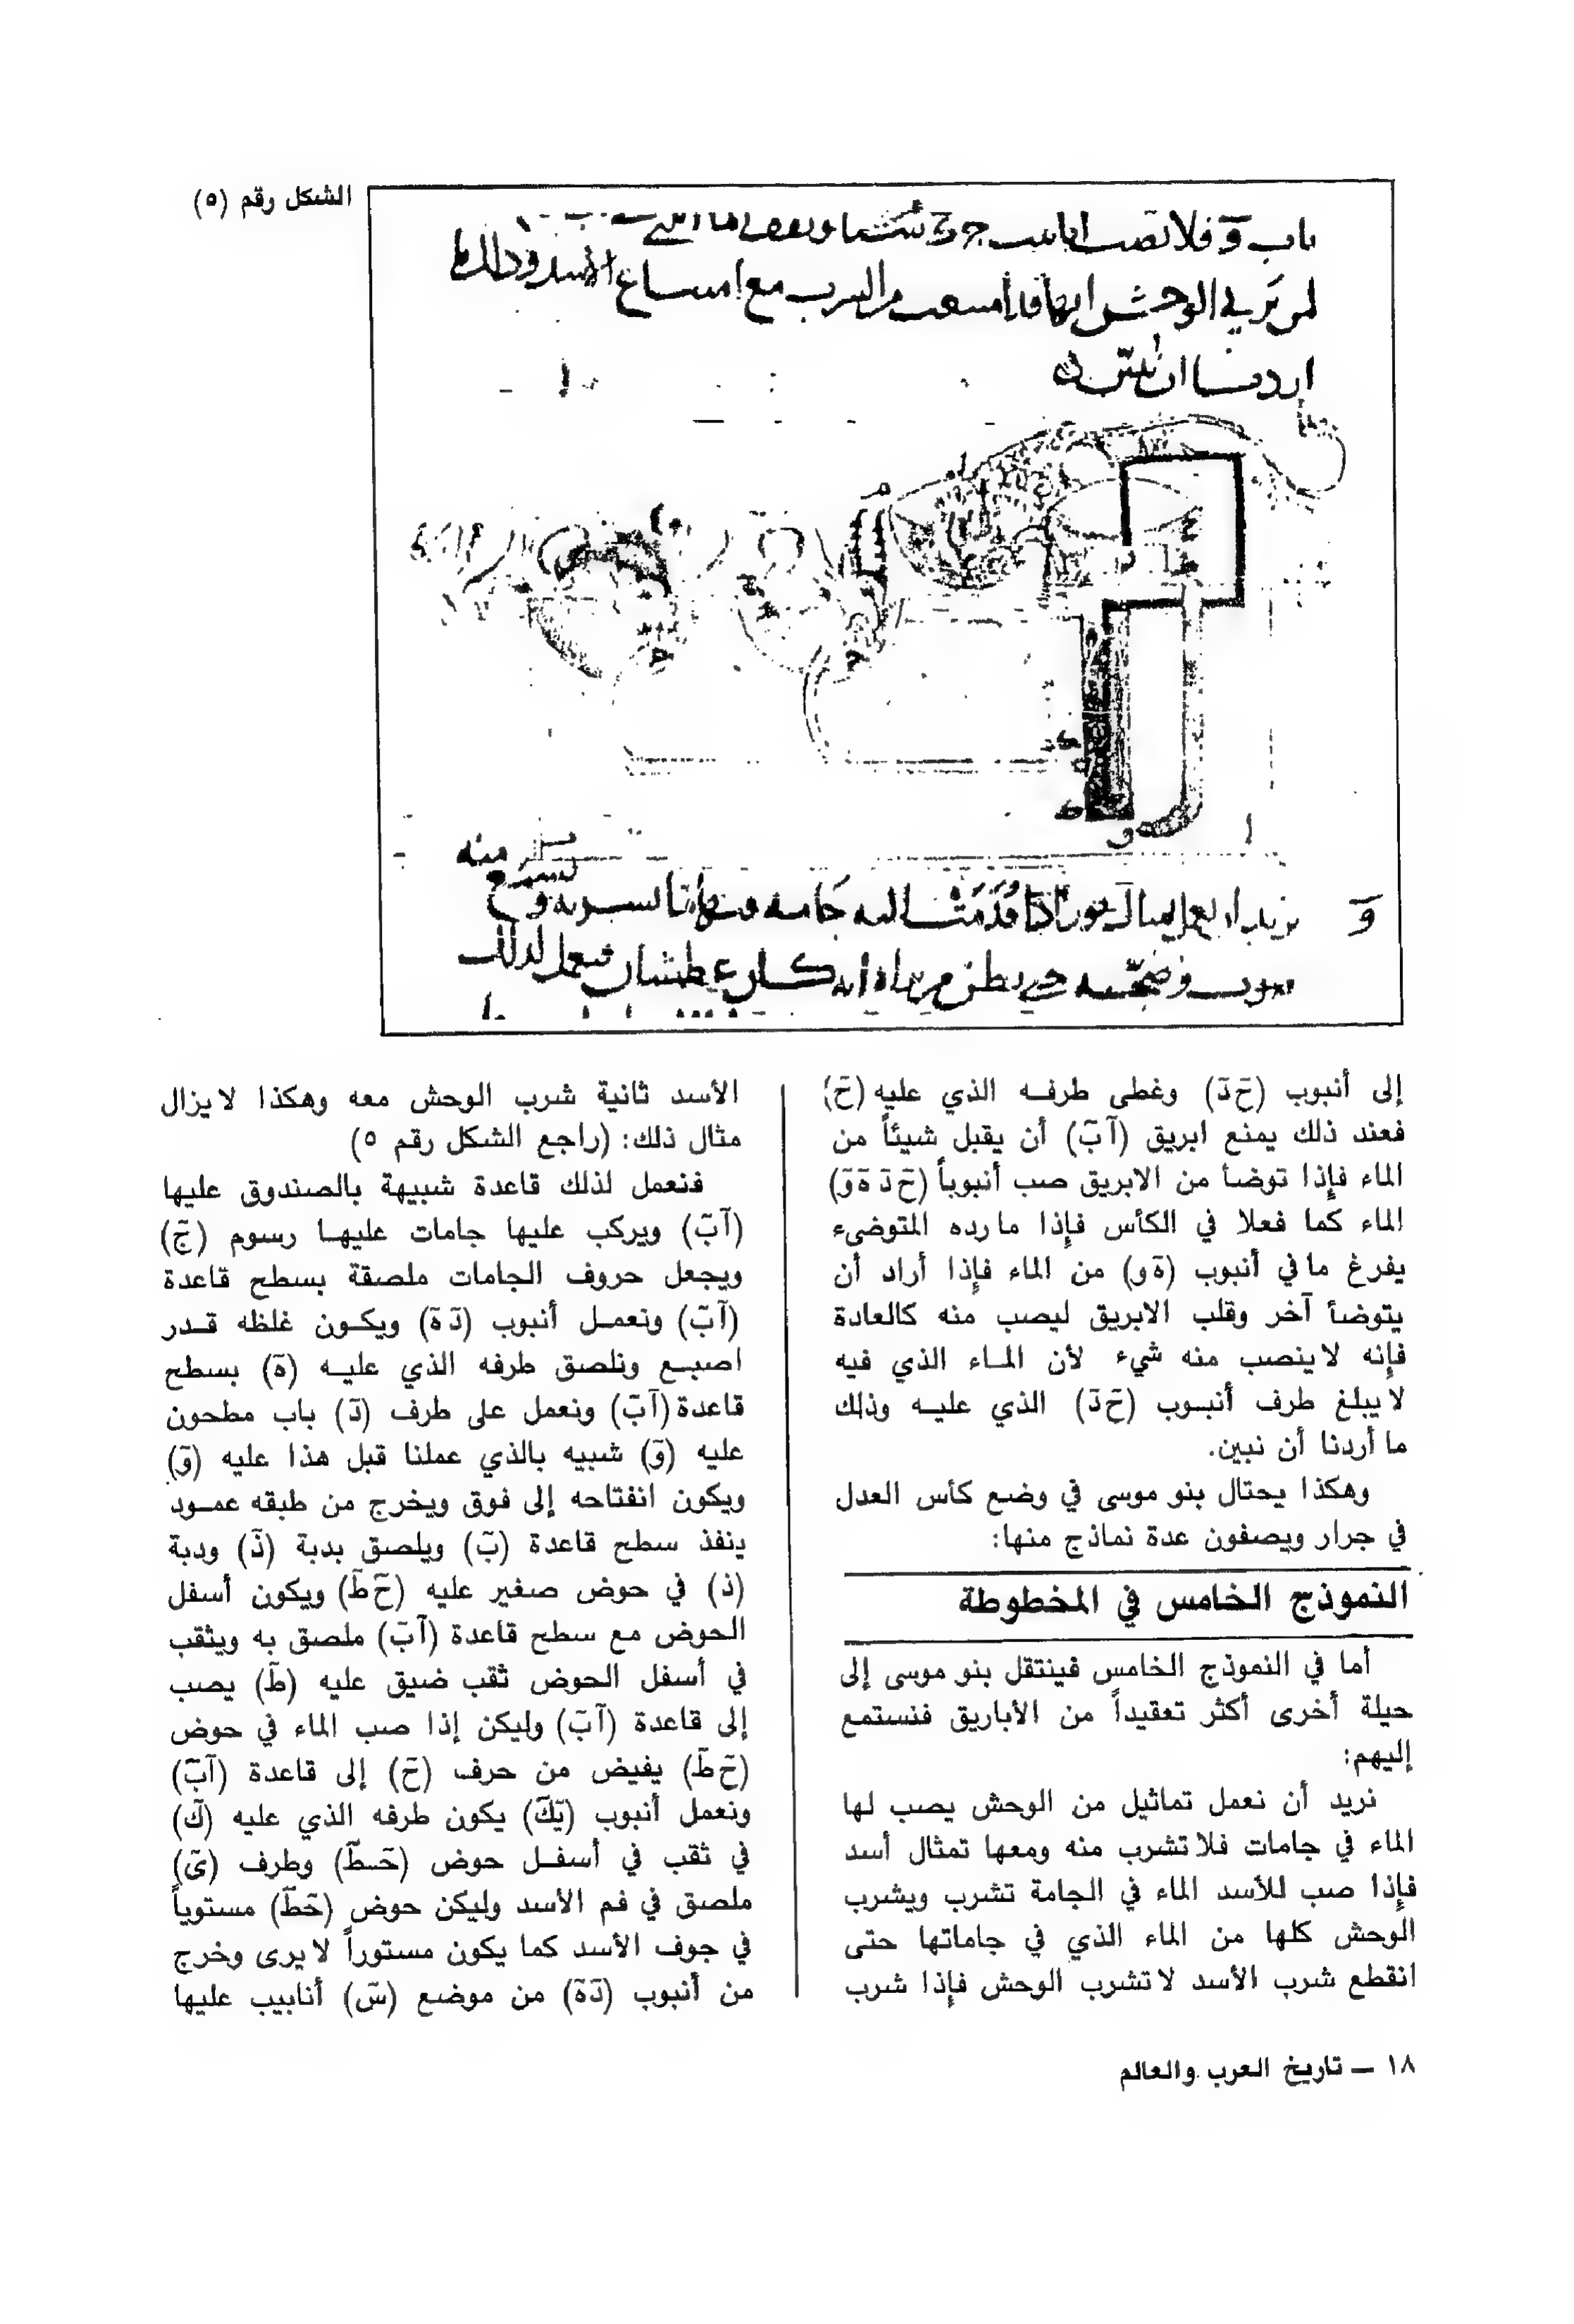 الشكل رقم (٥)
إلى أنبوب (حَ دَ) وغطى طرفه الذي عليه (حَ)
فعند ذلك يمنع ابريق (آ بَ) أن يقبل شيئاً من
الماء فإذا توضأ من الابريق صب أنبوباً (حَ دَ هَ وَ)
الماء كما فعلا في الكأس فإذا ما رده المتوضىء
يفرغ ما في أنبوب (هَ و) من الماء فإذا أراد أن
يتوضأ آخر وقلب الابريق ليصب منه كالعادة
فإنه لا ينصب منه شيء لأن الماء الذي فيه
لا يبلغ طرف أنبوب (حَ دَ) الذي عليه وذلك
ما أردنا أن نبين.
وهكذا يحتال بنو موسى في وضع كأس العدل
في جرار ويصفون عدة نماذج منها:
النموذج الخامس في المخطوطة
أما في النموذج الخامس فينتقل بنو موسى إلى
حيلة أخرى أكثر تعقيداً من الأباريق فنستمع
إليهم:
نريد أن نعمل تماثيل من الوحش يصب لها
الماء في جامات فلا تشرب منه ومعها تمثال أسد
فإذا صب للأسد الماء في الجامة تشرب ويشرب
الوحش كلها من الماء الذي في جاماتها حتى
انقطع شرب الأسد لا تشرب الوحش فإذا شرب
الأسد ثانية شرب الوحش معه وهكذا لا يزال
مثال ذلك: (راجع الشكل رقم ٥)
فنعمل لذلك قاعدة شبيهة بالصندوق عليها
(آ بَ) ويركب عليها جامات عليها رسوم (جَ)
ويجعل حروف الجامات ملصقة بسطح قاعدة
(آ بَ) ونعمل أنبوب (دَ هَ) ويكون غلظه قدر
اصبع ونلصق طرفه الذي عليه (هَ) بسطح
قاعدة (آ بَ) ونعمل على طرف (دَ) باب مطحون
عليه (وَ) شبيه بالذي عملنا قبل هذا عليه (وَ)
ويكون انفتاحه إلى فوق ويخرج من طبقه عمود
ينفذ سطح قاعدة (بَ) ويلصق بدبة (ذَ) ودبة
(ذ) في حوض صغير عليه (حَ طَ) ويكون أسفل
الحوض مع سطح قاعدة (آ بَ) ملصق به ويثقب
في أسفل الحوض ثقب ضيق عليه (طَ) يصب
إلى قاعدة (آ بَ) وليكن إذا صب الماء في حوض
(حَ طَ) يفيض من حرف (حَ) إلى قاعدة (آ بَ)
ونعمل أنبوب (يَكَ) يكون طرفه الذي عليه (كَ)
في ثقب في أسفل حوض (حَـطَ) وطرف (ىَ)
ملصق في فم الأسد وليكن حوض (حَطَ) مستوياً
في جوف الأسد كما يكون مستوراً لا يرى وخرج
من أنبوب (دَهَ) من موضع (سَ) أنابيب عليها
١٨ — تاريخ العرب والعالم